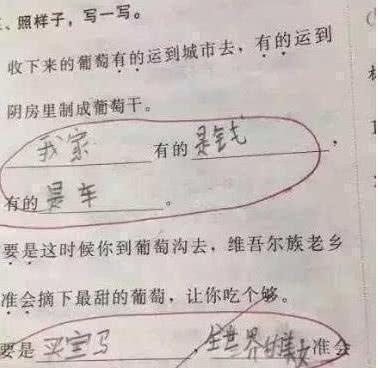 、照样子,写一写。
收下来的葡萄有的运到城市去,有的运到
阴房里制成葡萄干。
我家有的是钱,
有的是车。
要是这时候你到葡萄沟去,维吾尔族老乡
准会摘下最甜的葡萄,让你吃个够。
要是买宝马,全世界的美女准会